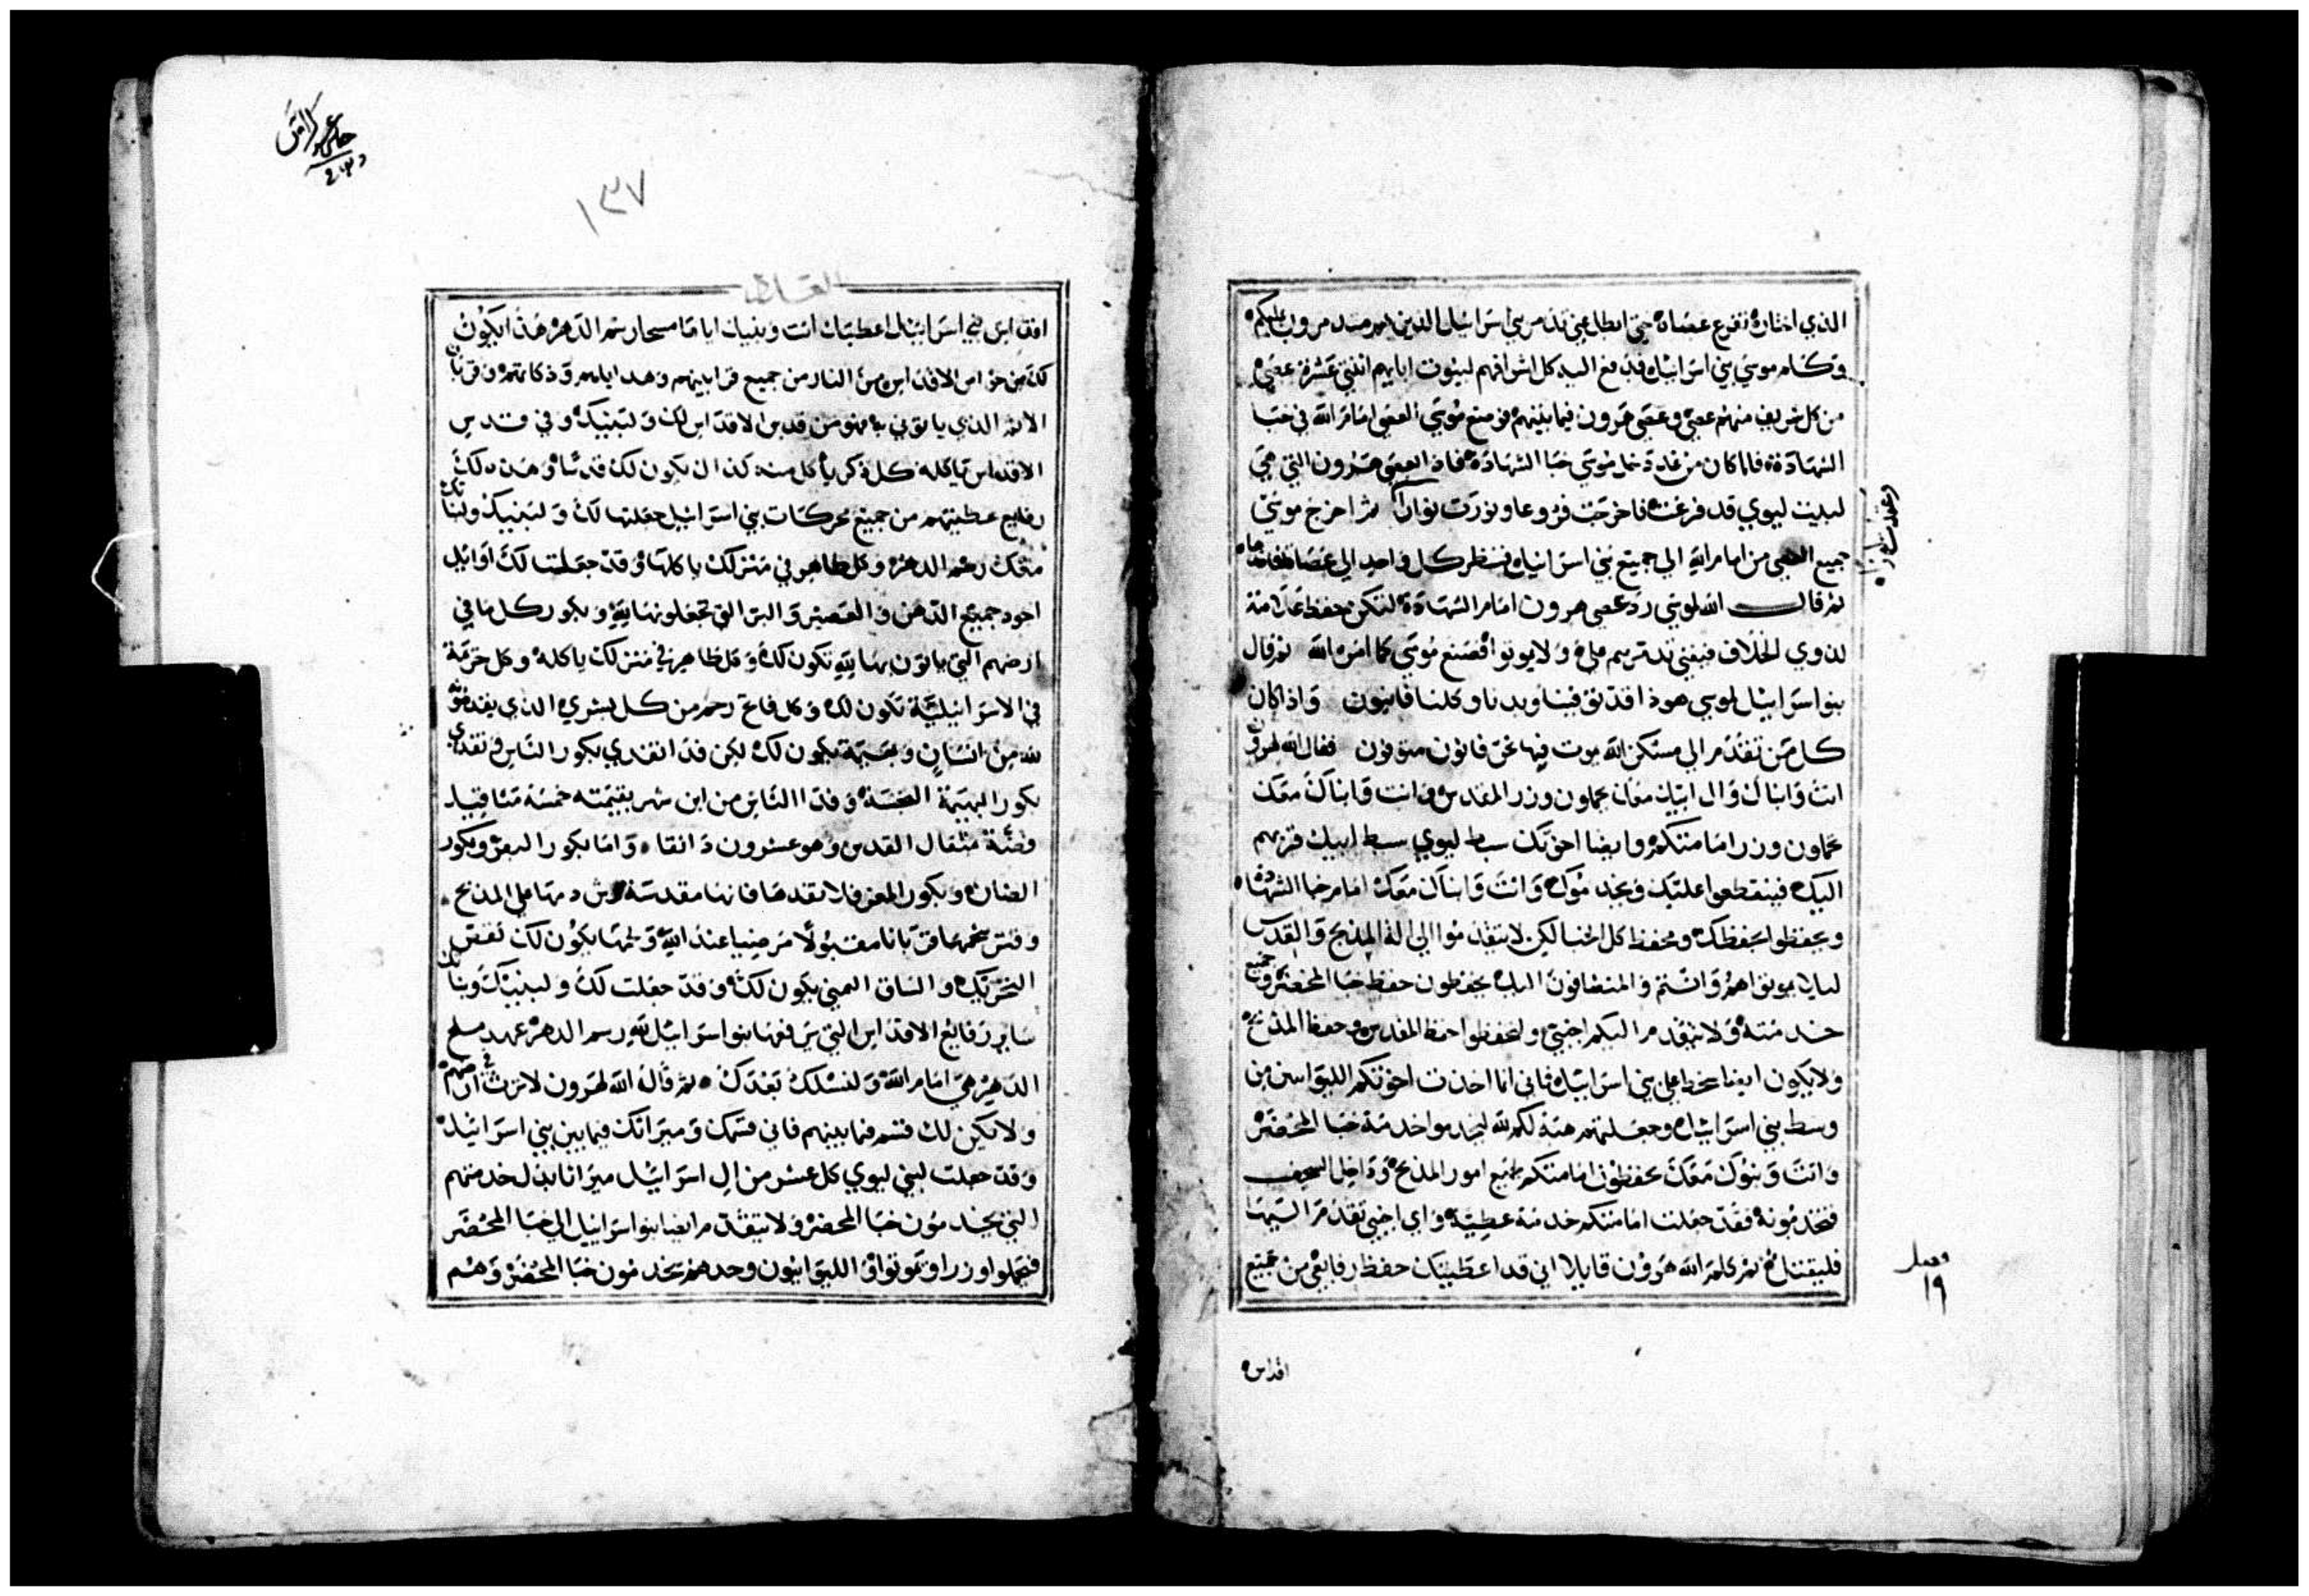 الذي اختاره تفرع عصاه حتى ابطل عني تذمر بني اسرائيل الذين هم متذمرون عليكم
وكلم موسي بني اسرائيل فدفع اليه كل اشرافهم لبيوت ابايهم اثنتي عشرة عصي
من كل شريف منهم عصي وعصي هرون فيما بينهم فوضع موسي العصي امام الله في خبا
الشهادة فلما كان من غد دخل موسي خبا الشهادة فاذا بعصي هرون التي هي
لبيت ليوي قد فرعت فاخرجت فروعا ونورت نوارا ثم اخرج موسي
وعقدت لوزا
جميع العصي من امام الله الي جميع بني اسرائيل فنظر كل واحد الي عصاه فاخذها
ثم قال الله لموسي رد عصي هرون امام الشهادة لتكن حفظا علامة
لذوي الخلاف فيفني تذمرهم علي ولا يموتوا فصنع موسي كما امره الله ثم قال
بنو اسرائيل لموسي هوذا قد توفينا وبدنا وكلنا فانيون واذا كان
كل من تقدم الي مسكن الله يموت فيها نحن فانون متوفون فقال الله لهرون
انت وابناك وال ابيك معك يحملون وزر المقدس وانت وابناك معك
تحملون وزر امامتكم وايضا اخوتك سبط ليوي سبط ابيك قربهم
اليك فينقطعوا عليك ويخدموك وانت وابناك معك امام خبا الشهادة
ويحفظوا بحفظك ومحفظ كل الخبا لكن لا يتقدموا الي الة المذبح والقدس
ليلا يموتوا هم وانتم والمنضافون اليك يحفظون حفظ خبا المحضر وجميع
خدمته ولا يتقدم اليكم اجنبي ولتحفظوا حفظ المقدس وحفظ المذبح
ولا يكون ايضا سخط علي بني اسرائيل فاني انا اخذت اخوتكم الليوانيين من
وسط بني اسرائيل وجعلتهم هبة لكم لله ليخدموا خدمة خبا المحضر
وانت وبنوك معك تحفظون امامتكم لجميع امور المذبح وداخل السجف
فتخدمونه فقد جعلت امامتكم خدمة عطية واي اجنبي تقدم اليها
فليقتل ثم كلم الله هرون قايلا اني قد اعطيتك حفظ رفايعي من جميع
فصل
١٩
اقداس
١٣٧
اقداس بني اسرائيل اعطيتك انت وبنيك اياها مسحا رسم الدهر هذا يكون
لك من خواص الاقداس من النار من جميع قرابينهم وهداياهم وذكاتهم وقربان
الاثم الذي ياتوني به فهو من قدس الاقداس لك ولبنيك وفي قدس
الاقداس تاكله كل ذكر ياكل منه كذا ان يكون لك قدسا وهذه لك
رفايع عطيتهم من جميع محركات بني اسرائيل جعلتها لك ولبنيك ولبناتك
معك رسم الدهر وكل طاهر في منزلك ياكلها وقد جعلت لك اوايل
اجود جميع الدهن والعصير والبر التي تجعلونها لله وبكور كل ما في
ارضهم التي ياتون بها لله تكون لك وكل طاهر في منزلك ياكله وكل حرمة
في الاسرائيلية تكون لك وكل فاتح رحم من كل بشري الذي يقدمونه
لله من انسان وبهيمة يكون لك لكن فدا تفدي بكور الناس وتفدي
بكور البهيمة النجسة وفدا الناس من ابن شهر بقيمته خمسة مثاقيل
فضة مثقال القدس وهو عشرون دانقا واما بكور البقر وبكور
الضان وبكور المعز فلا تفدها فانها مقدسة ورش دمها علي المذبح
وقتر شحمها قربانا مقبولا مرضيا عند الله ولحمها يكون لك كقص
التحريك والساق اليمني يكون لك وقد جعلت لك ولبنيك وبناتك
ساير رفايع الاقداس التي يرفعها بنو اسرائيل لله رسم الدهر عهد ملح
الدهر هي امام الله ولنسلك بعدك ثم قال الله لهرون لا ترث في ارضهم
ولا يكن لك قسم فيما بينهم فاني قسمك وميراثك فيما بين بني اسرائيل
وقد جعلت لبني ليوي كل عشر من ال اسرائيل ميراثا بدل خدمتهم
التي يخدمون خبا المحضر ولا يتقدم ايضا بنو اسرائيل الي خبا المحضر
فيحملوا وزرا ويموتوا الليوانيون وحدهم يخدمون خبا المحضر وهم